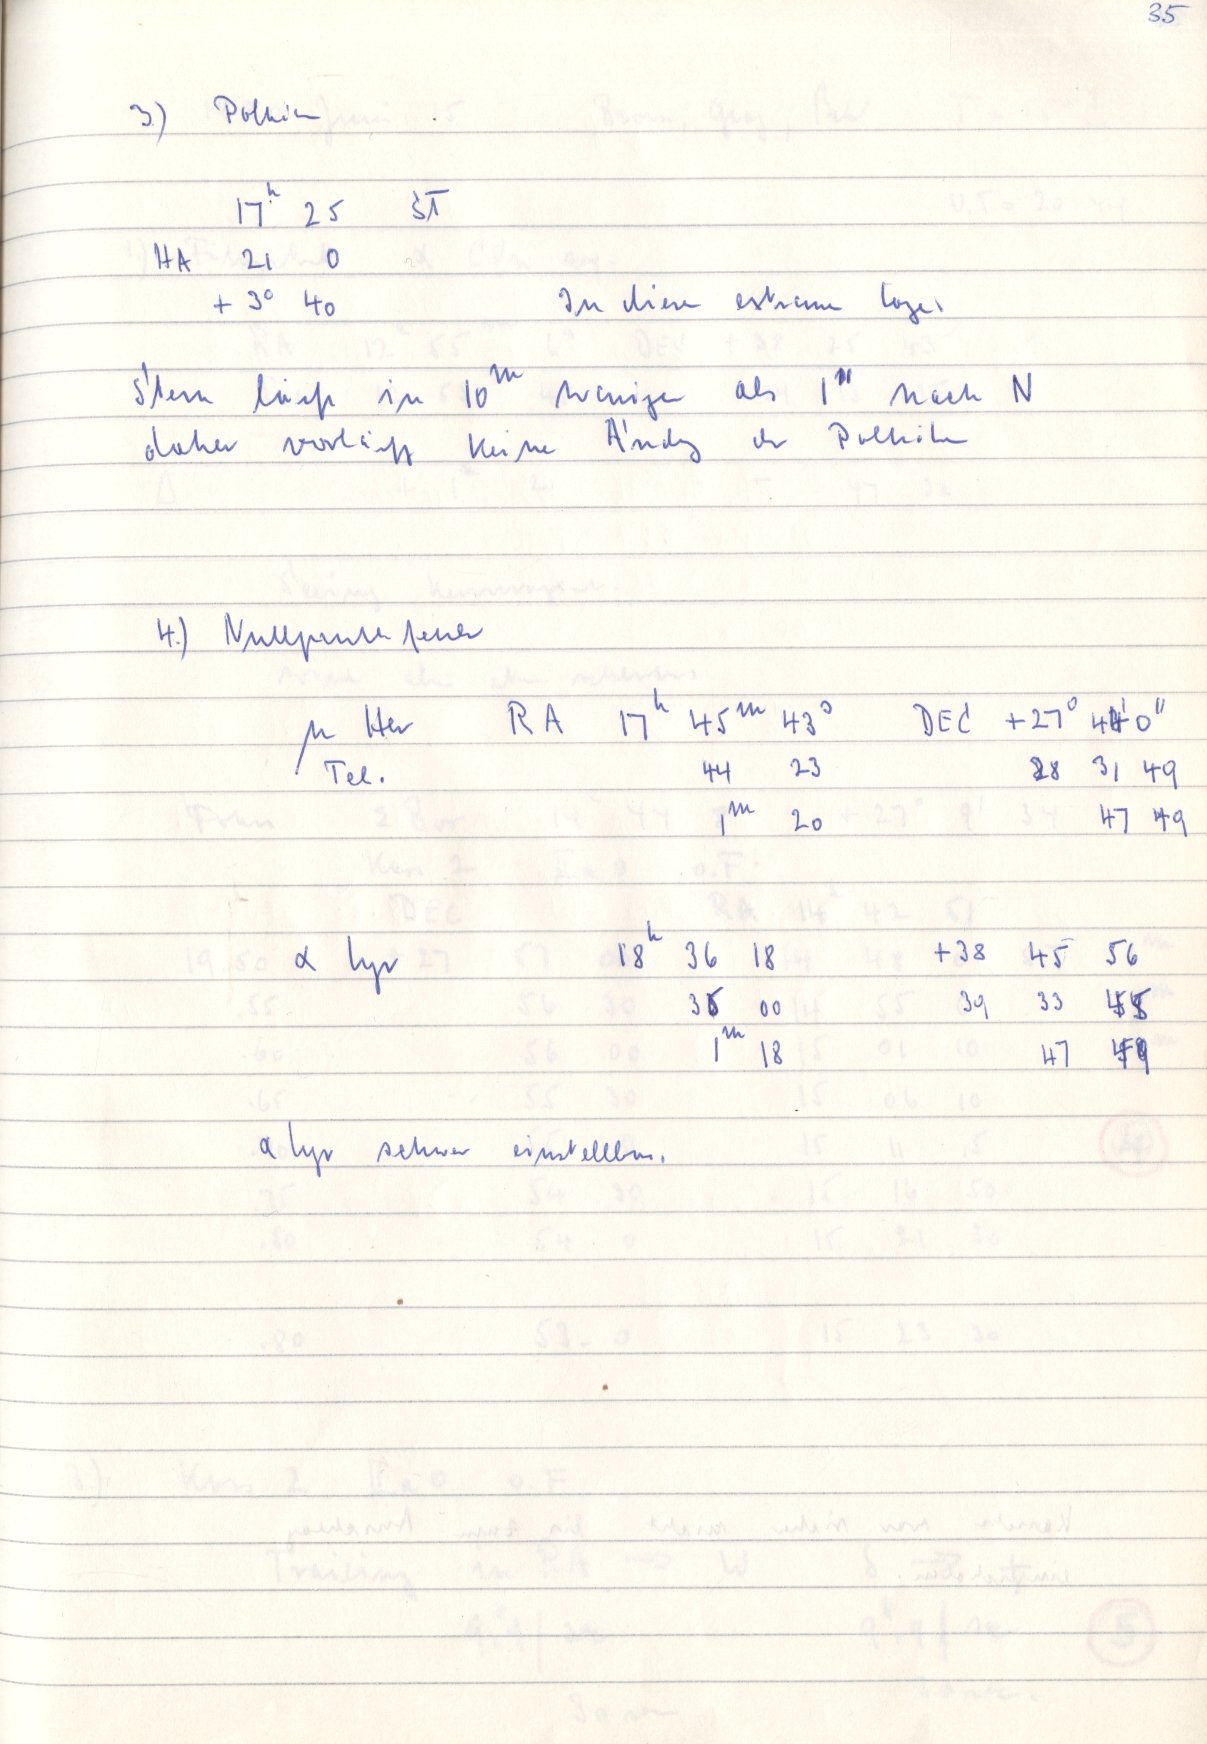 35
3.) Polhöhe
17h 25 ST
HA 21 0
+ 3° 40 In dieser extremen Lage.
Stern läuft in 10m weniger als 1" nach N
daher vorläufig keine Ändg der Polhöhe
4.) Nullpunktsfehler
μ Her RA 17h 45m 43s DEC +27° 44' 0"
Tel. 44 23 28 31 49
1m 20 47 49
α Lyr 18h 36 18 +38 45 56
35 00 39 33 45
1m 18 47 49
α Lyr schwer einstellbar.